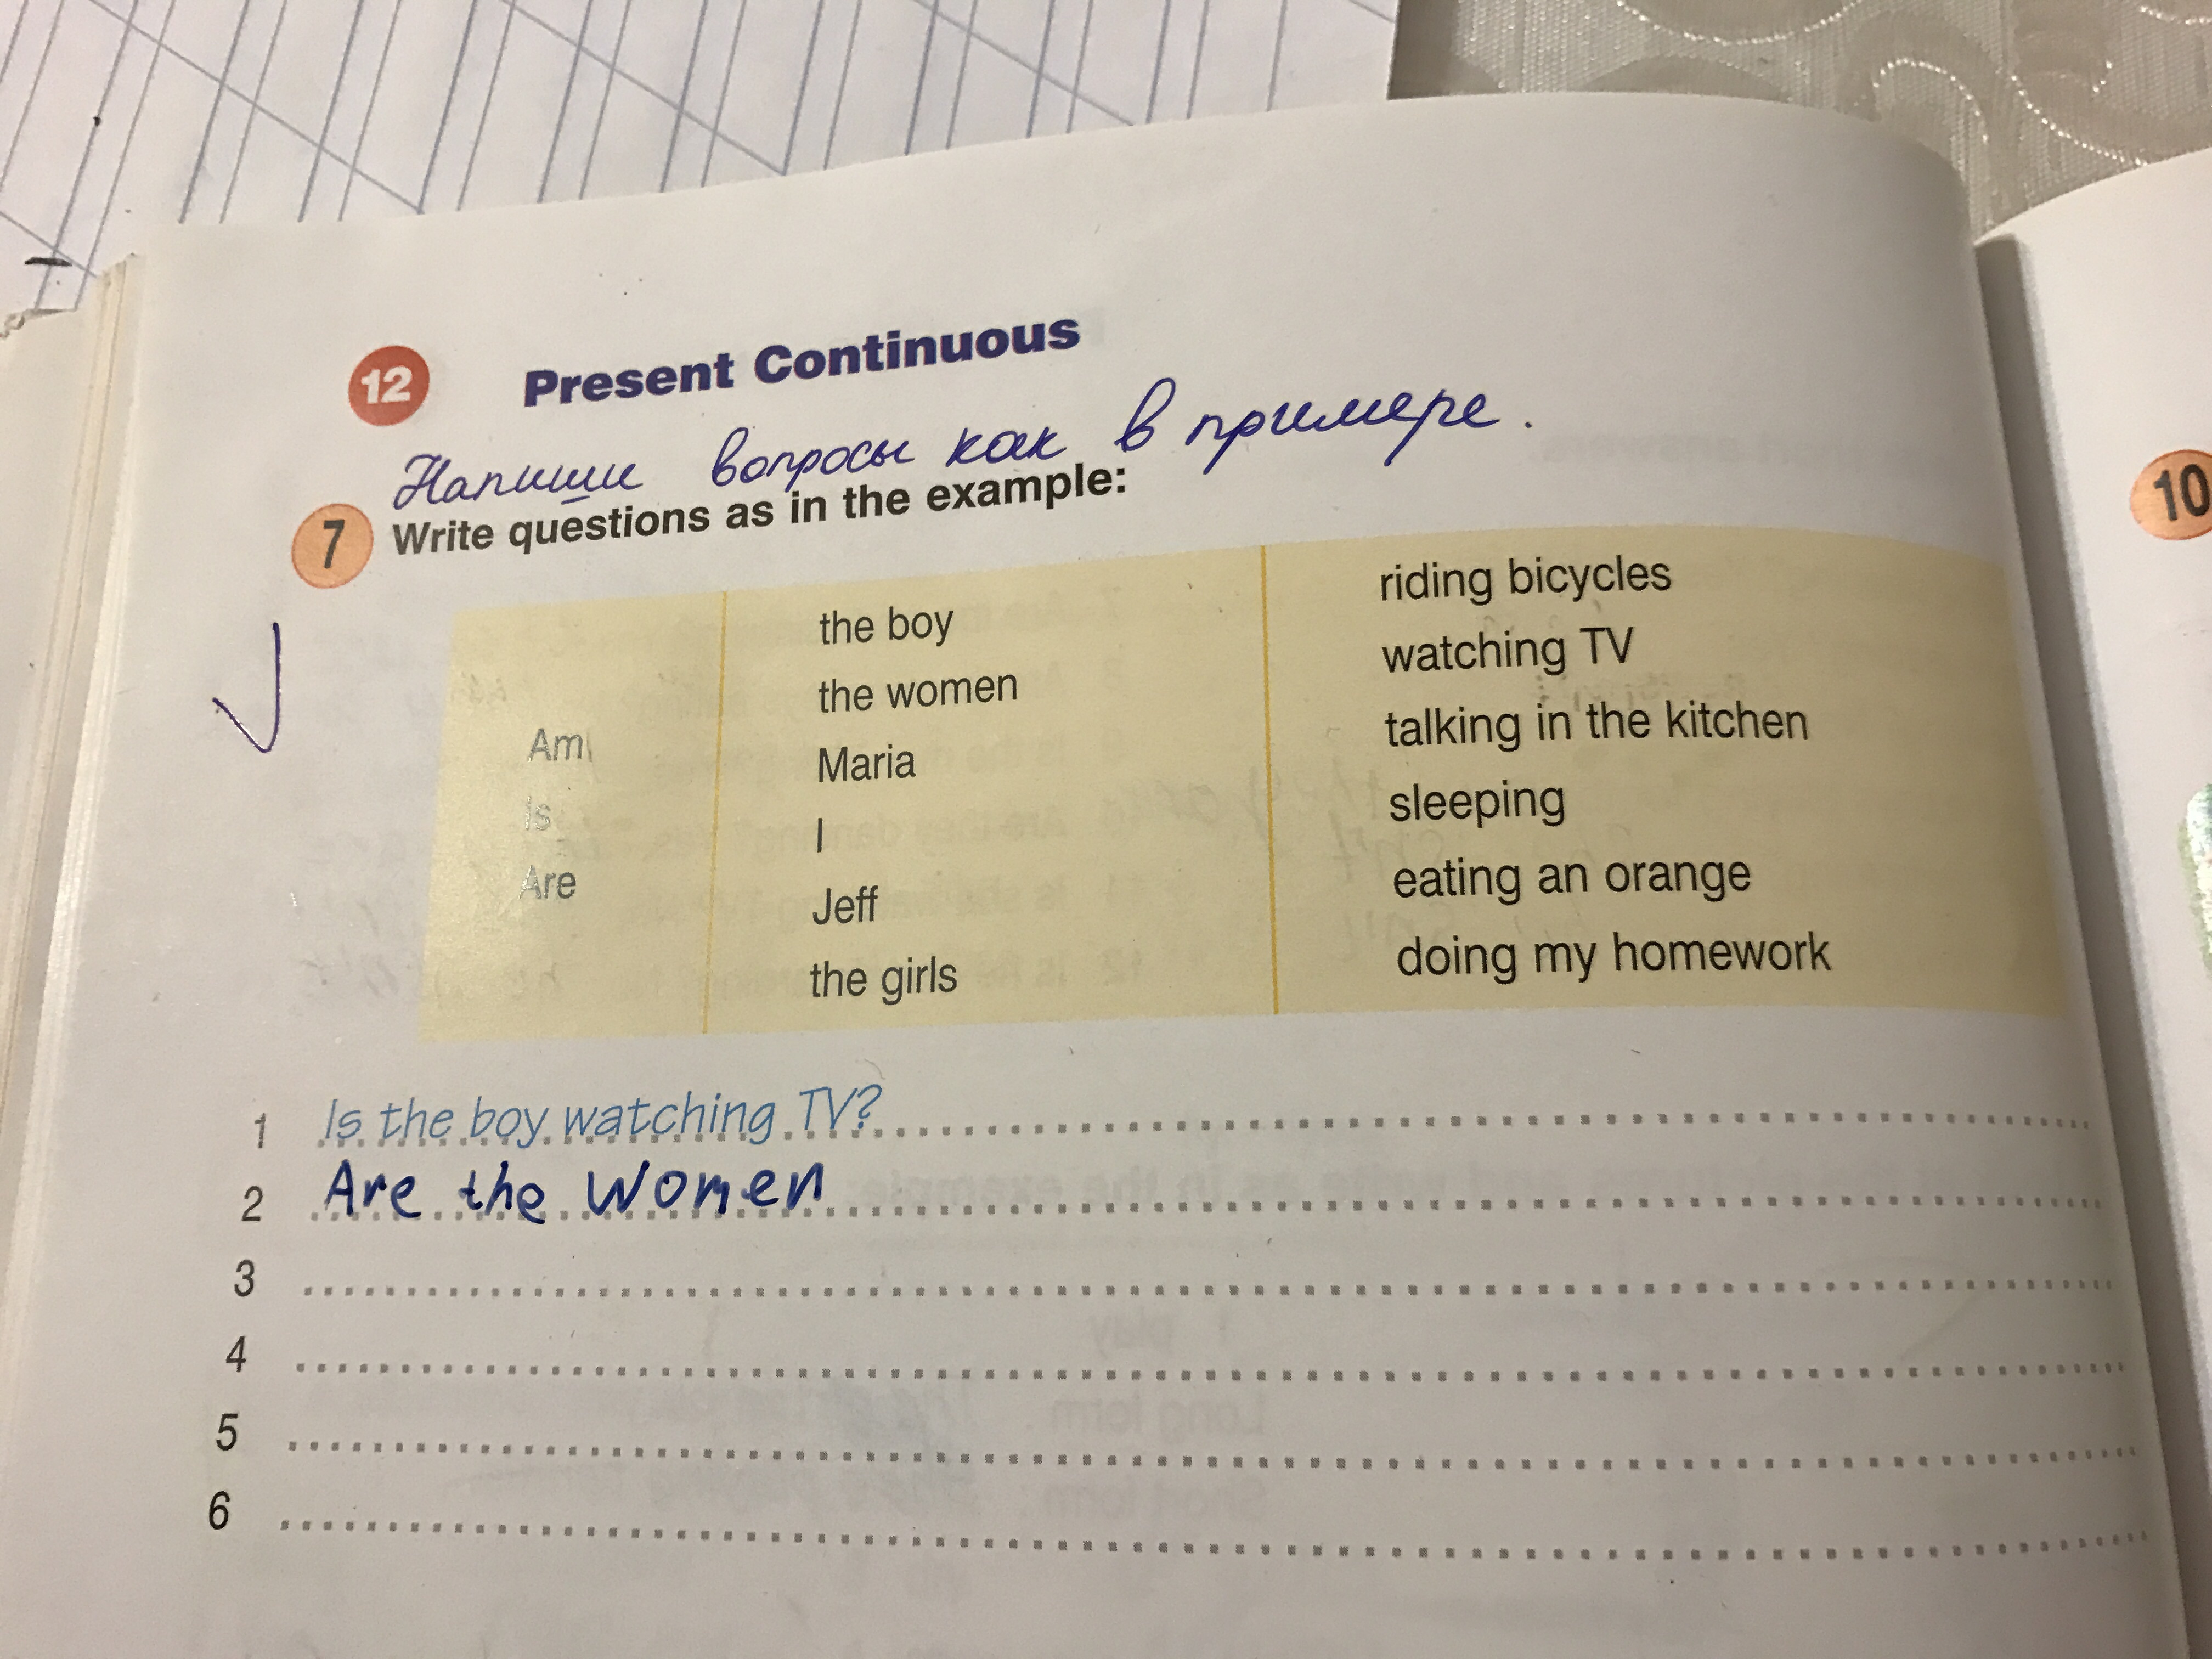 12 Present Continuous
Напиши вопросы как в примере.
7 Write questions as in the example:
10
the boy
the women
Maria
I
Jeff
the girls
Am
Is
Are
riding bicycles
watching TV
talking in the kitchen
sleeping
eating an orange
doing my homework
1 Is the boy watching TV?
2 Are the women
3
4
5
6